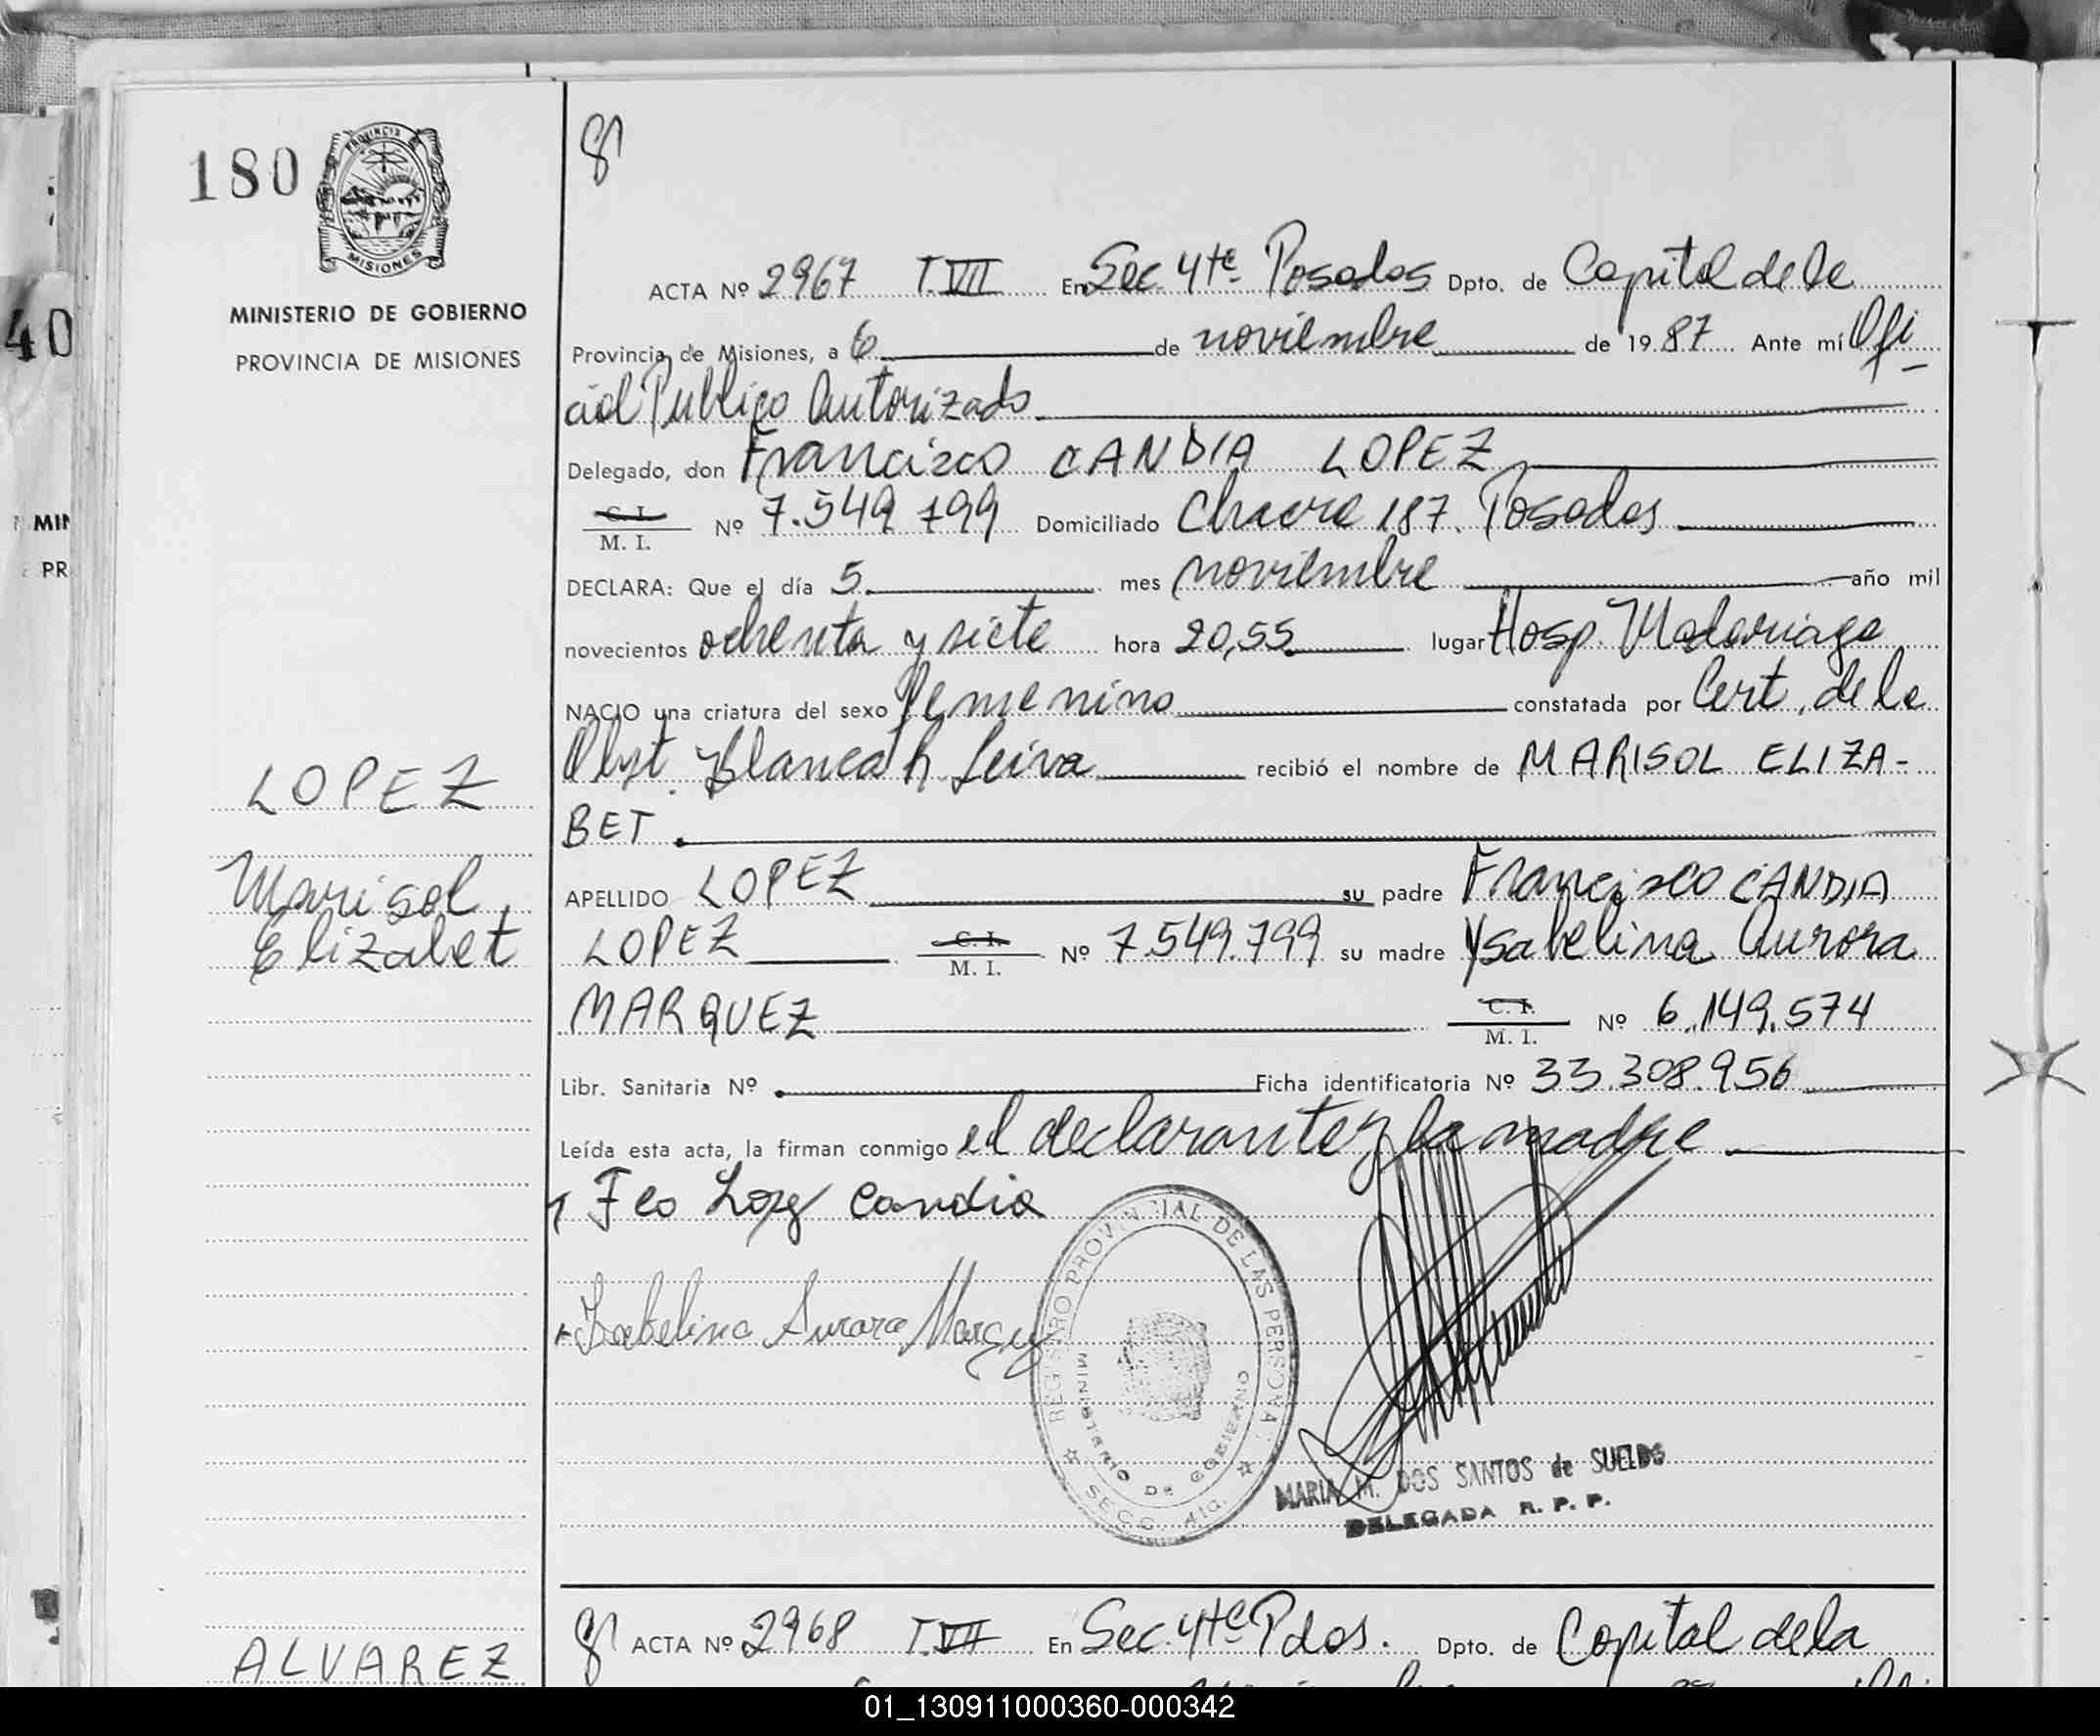 180
PROVINCIA DE
MISIONES
MINISTERIO DE GOBIERNO
PROVINCIA DE MISIONES
40
MIN
PR
ACTA Nº 2967 T. VII En Sec. 4ta Posadas Dpto. de Capital de la
Provincia de Misiones, a 6 de noviembre de 1987 Ante mí Ofi
cial Publico Autorizado
Delegado, don Francisco CANDIA LOPEZ
C. I.
M. I. Nº 7.549.799 Domiciliado Chacra 187. Posadas
DECLARA: Que el día 5 mes noviembre año mil
novecientos ochenta y siete hora 20,55 lugar Hosp. Madariaga
NACIO una criatura del sexo femenino constatada por Cert. de la
Obst. Blanca h. Leiva recibió el nombre de MARISOL ELIZA-
BET
APELLIDO LOPEZ su padre Francisco CANDIA
LOPEZ C. I.
M. I. Nº 7.549.799 su madre Ysabelina Aurora
MARQUEZ C. I.
M. I. Nº 6.149.574
Libr. Sanitaria Nº Ficha identificatoria Nº 33.308.956
Leída esta acta, la firman conmigo el declarante y la madre
Fco Lopez Candia
Isabelina Aurora Marquez
LOPEZ
Marisol
Elizabet
REGISTRO PROVINCIAL DE LAS PERSONAS
MINISTERIO DE GOBIERNO
SECC. 4ta.
MARIA M. DOS SANTOS de SUELDO
DELEGADA R. P. P.
ALVAREZ
ACTA Nº 2968 T. VII En Sec. 4ta Pdas. Dpto. de Capital de la
01_130911000360-000342